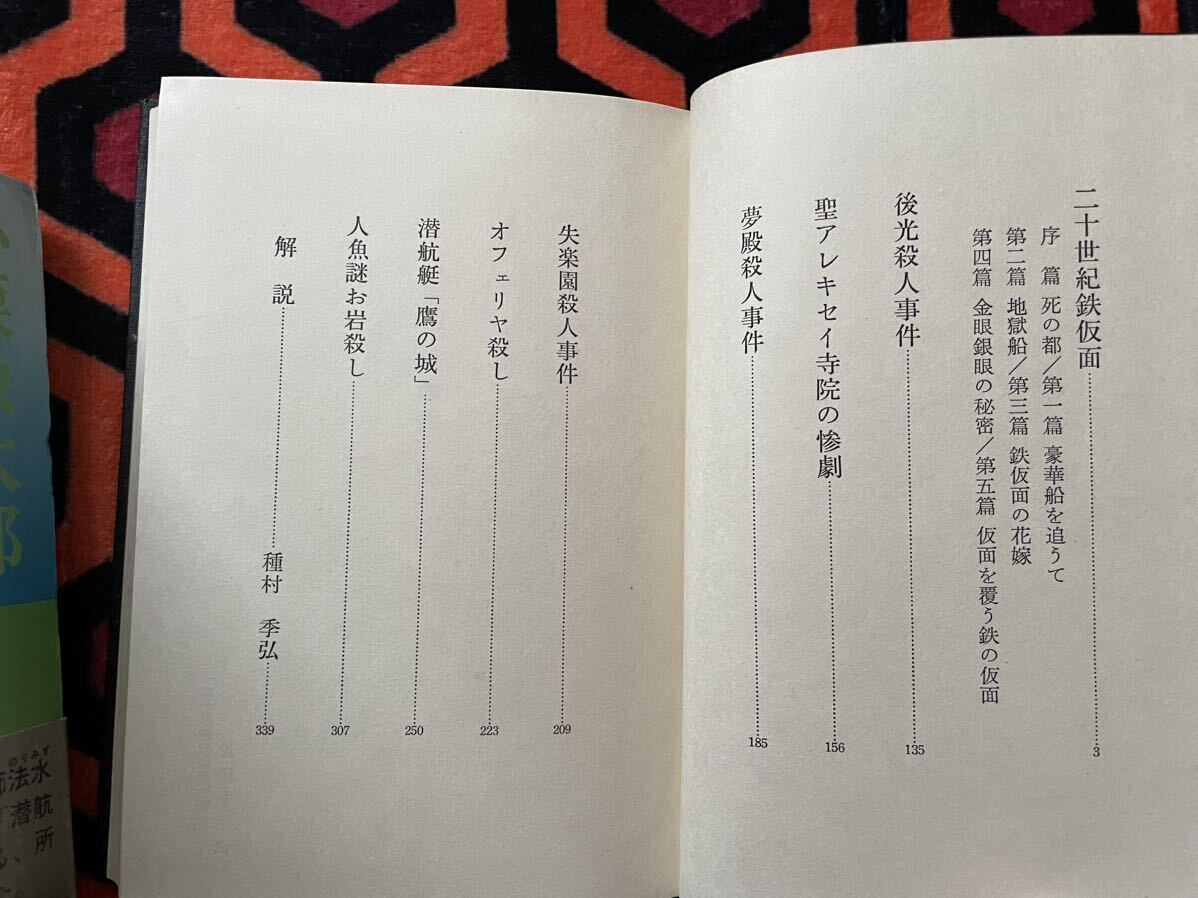 二十世紀鉄仮面……3
序篇 死の都/第一篇 豪華船を追うて
第二篇 地獄船/第三篇 鉄仮面の花嫁
第四篇 金眼銀眼の秘密/第五篇 仮面を覆う鉄の仮面
後光殺人事件……135
聖アレキセイ寺院の惨劇……156
夢殿殺人事件……185
失楽園殺人事件……209
オフェリヤ殺し……223
潜航艇「鷹の城」……250
人魚謎お岩殺し……307
解説……種村 季弘……339
法水
のりみず
潜航
、所